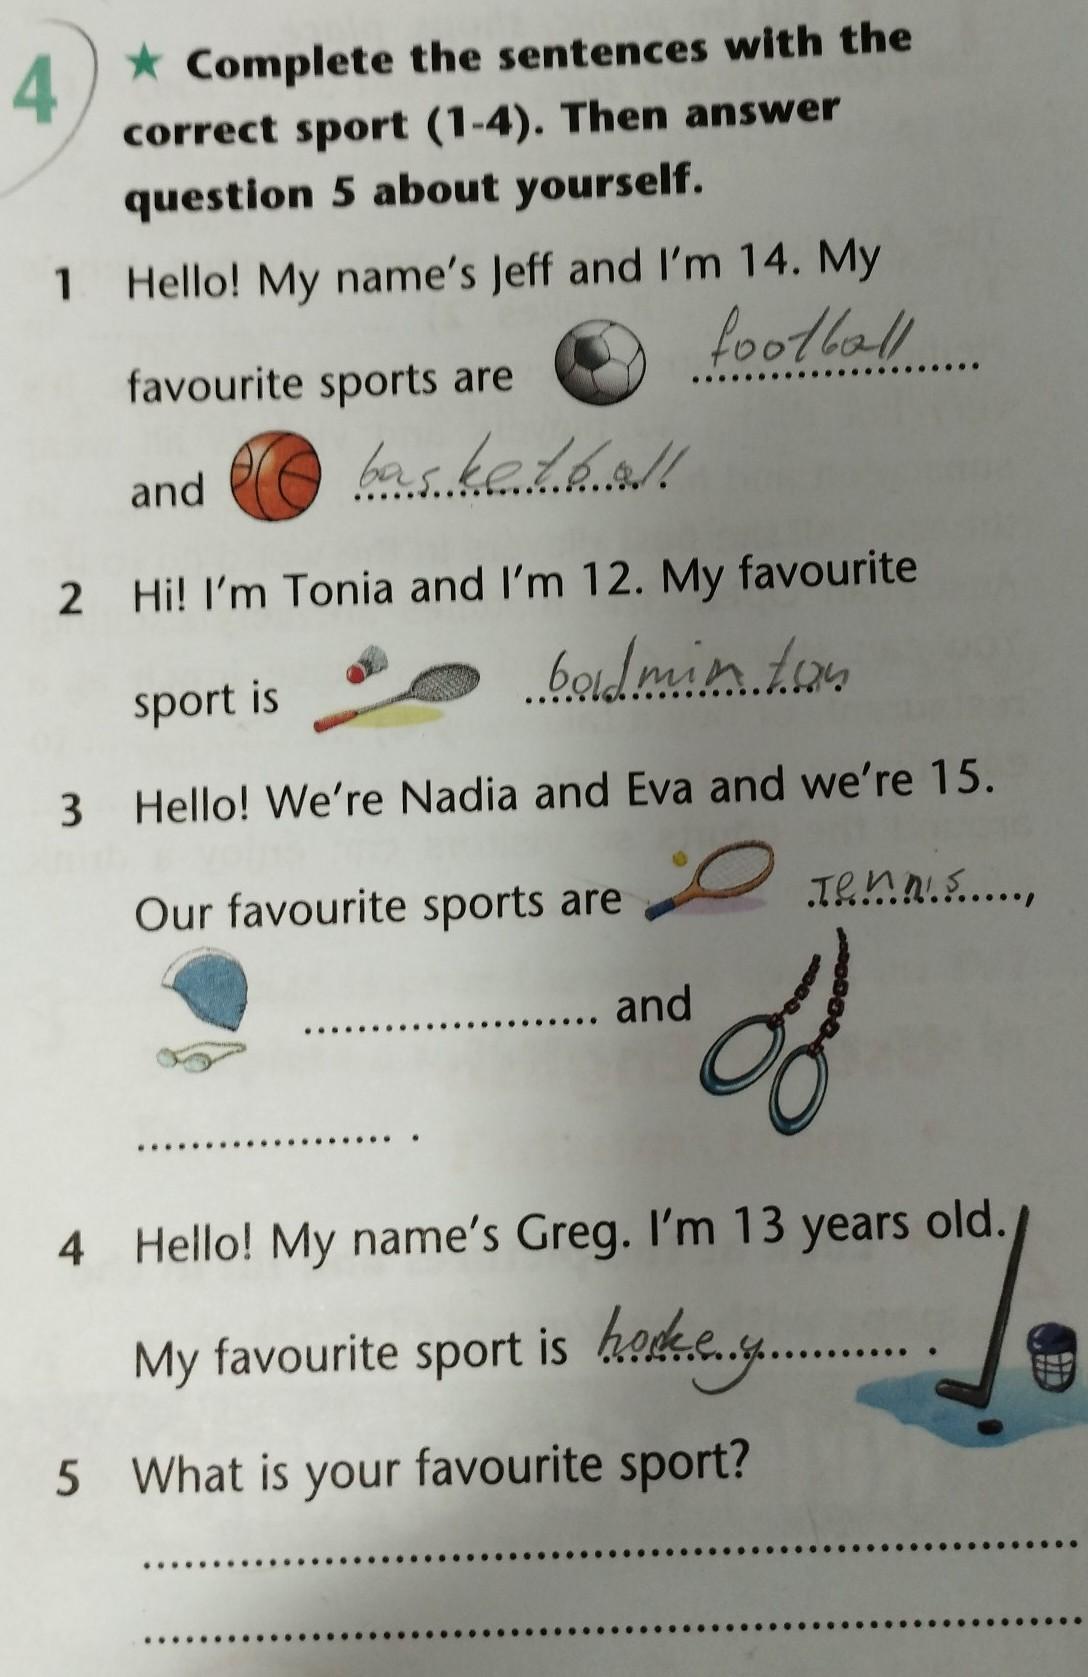 4 ★ Complete the sentences with the
correct sport (1-4). Then answer
question 5 about yourself.
1 Hello! My name's Jeff and I'm 14. My
favourite sports are football
and basketball
2 Hi! I'm Tonia and I'm 12. My favourite
sport is badminton
3 Hello! We're Nadia and Eva and we're 15.
Our favourite sports are Tennis ,
.................... and
.................... .
4 Hello! My name's Greg. I'm 13 years old.
My favourite sport is hockey .
5 What is your favourite sport?